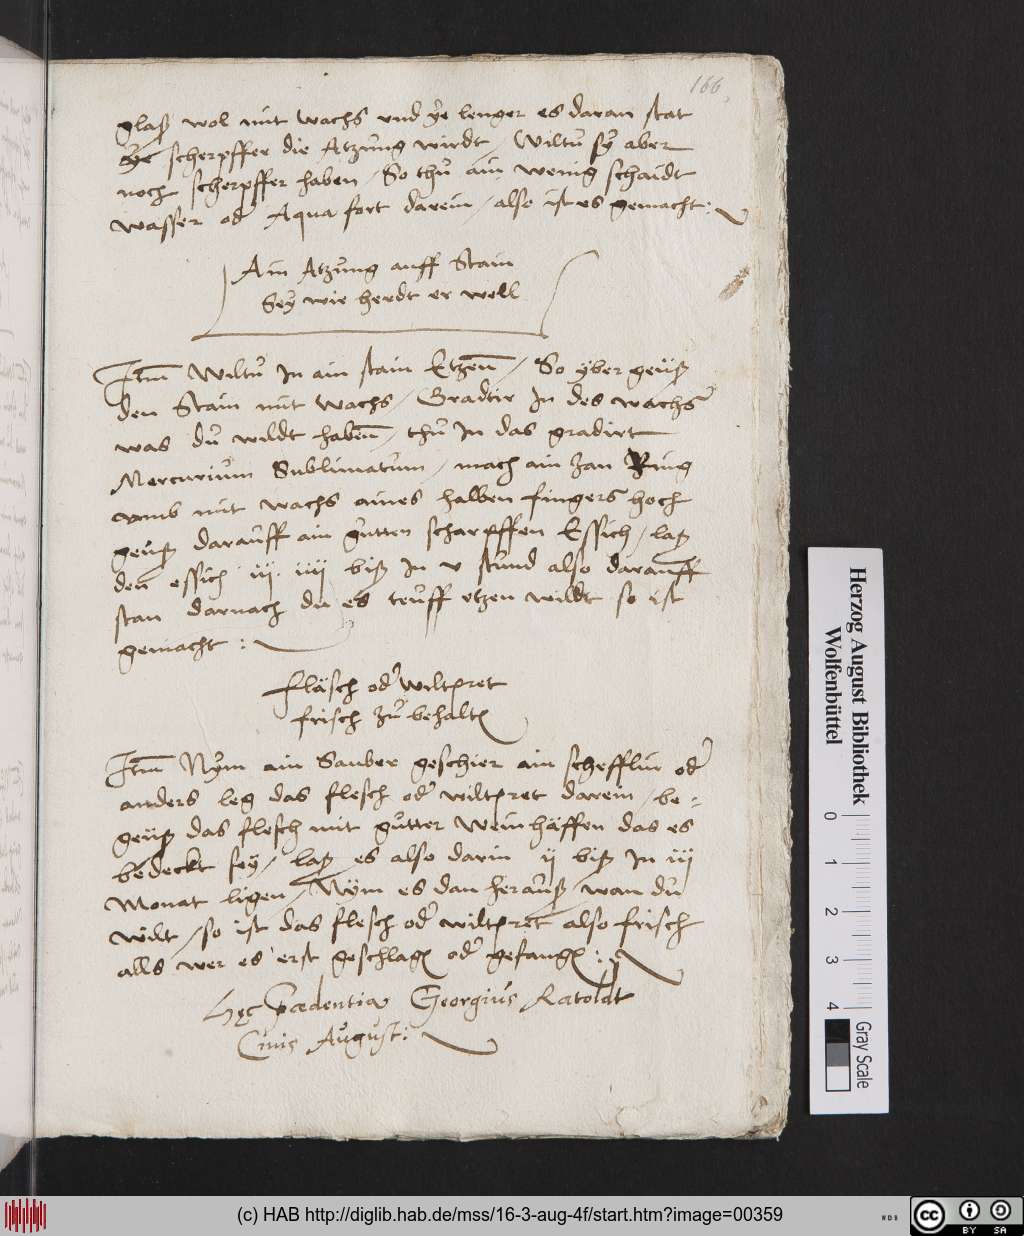 166
glaß wol mit wachs vnd ÿe lenger es daran stat
ÿe scherpffer die Atzung wirdt / Wiltu sÿ aber
noch scherpffer haben / So thů ain wenig schaidt
wasser od Aqua fort darein / also ist es gemacht :
Ain Atzung auff Stain
Seÿ wie herdt er well
Itm Wiltu In ain stain Etzenn / So ÿber geüß
den Stain mit wachs / Gradir In des wachs
was du wildt habenn / thů In das gradirt
Mercurium Sublimatum / mach ain Ring
vmb mit wachs aines halben fingers hoch
geuß darauff ain gutten scharpffen Essich / laß
den essich iij. iiij biß In v stund also darauff
stan darnach du es teuff etzen wildt so ist
gemacht :
Fläsch oder wiltpret
frisch zu behaltn
Itm Nÿm ain Sauber geschier ain schefflin oder
anders leg das flesch oder wiltpret darein / be=
geüß das flesch mit gutter Weinhäffen das es
bedeckt seÿ / laß es also darin ij biß In iij
Monat ligen / Nÿm es dan herauß / wan du
wilt / so ist das flesch oder wiltpret also frisch
alls wer es erst geschlagn oder gefangn :
Georgius Ratoldt
Ciuis August :
Herzog August Bibliothek
Wolfenbüttel
0 1 2 3 4
Gray Scale
(c) HAB http://diglib.hab.de/mss/16-3-aug-4f/start.htm?image=00359
cc BY SA